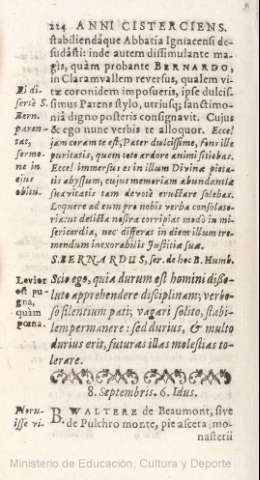 224 ANNI CISTERCIENS.
stabiliendâque Abbatia Igniacensi de-
sudâsti: inde autem dissimulante ma-
gis, quàm probante BERNARDO,
in Claramvallem reversus, qualem vi-
tæ coronidem imposueris, ipse dulcis-
simus Parens stylo, utriusq; sanctimo-
niâ digno posteris consignavit. Cujus
& ego nunc verbis te alloquor. Ecce!
jam coram te est, Pater dulcissime, fons ille
puritatis, quem toto ardore animi sitiebas.
Ecce! immersus es in illum Divinæ pieta-
tis abyssum, cujus memoriam abundantiæ
suavitatis tam devotè eructare solebas.
Loquere ad eum pro nobis verba consolato-
ria: ut delicta nostra corripiat modò in mi-
sericordia, nec differat in diem illum tre-
mendum inexorabilis Justitiæ suæ.
S. BERNARDUS, ser. de hoc B. Humb.
Scio ego, quia durum est homini disso-
luto apprehendere disciplinam; verbo-
so silentium pati; vagari solito, stabi-
lem permanere: sed durius, & multo
durius erit, futuras illas molestias to-
lerare.
8. Septembris. 6. Idus.
B. WALTERE de Beaumont, sive
de Pulchro monte, pie asceta, mo-
nasterii
Ei di-
seriè S.
Bern.
paren-
tat,
sermo-
ne in
ejus
obitu.
Levior
est pu-
gna,
quàm
pœna.
Floru-
isse vi-
Ministerio de Educación, Cultura y Deporte